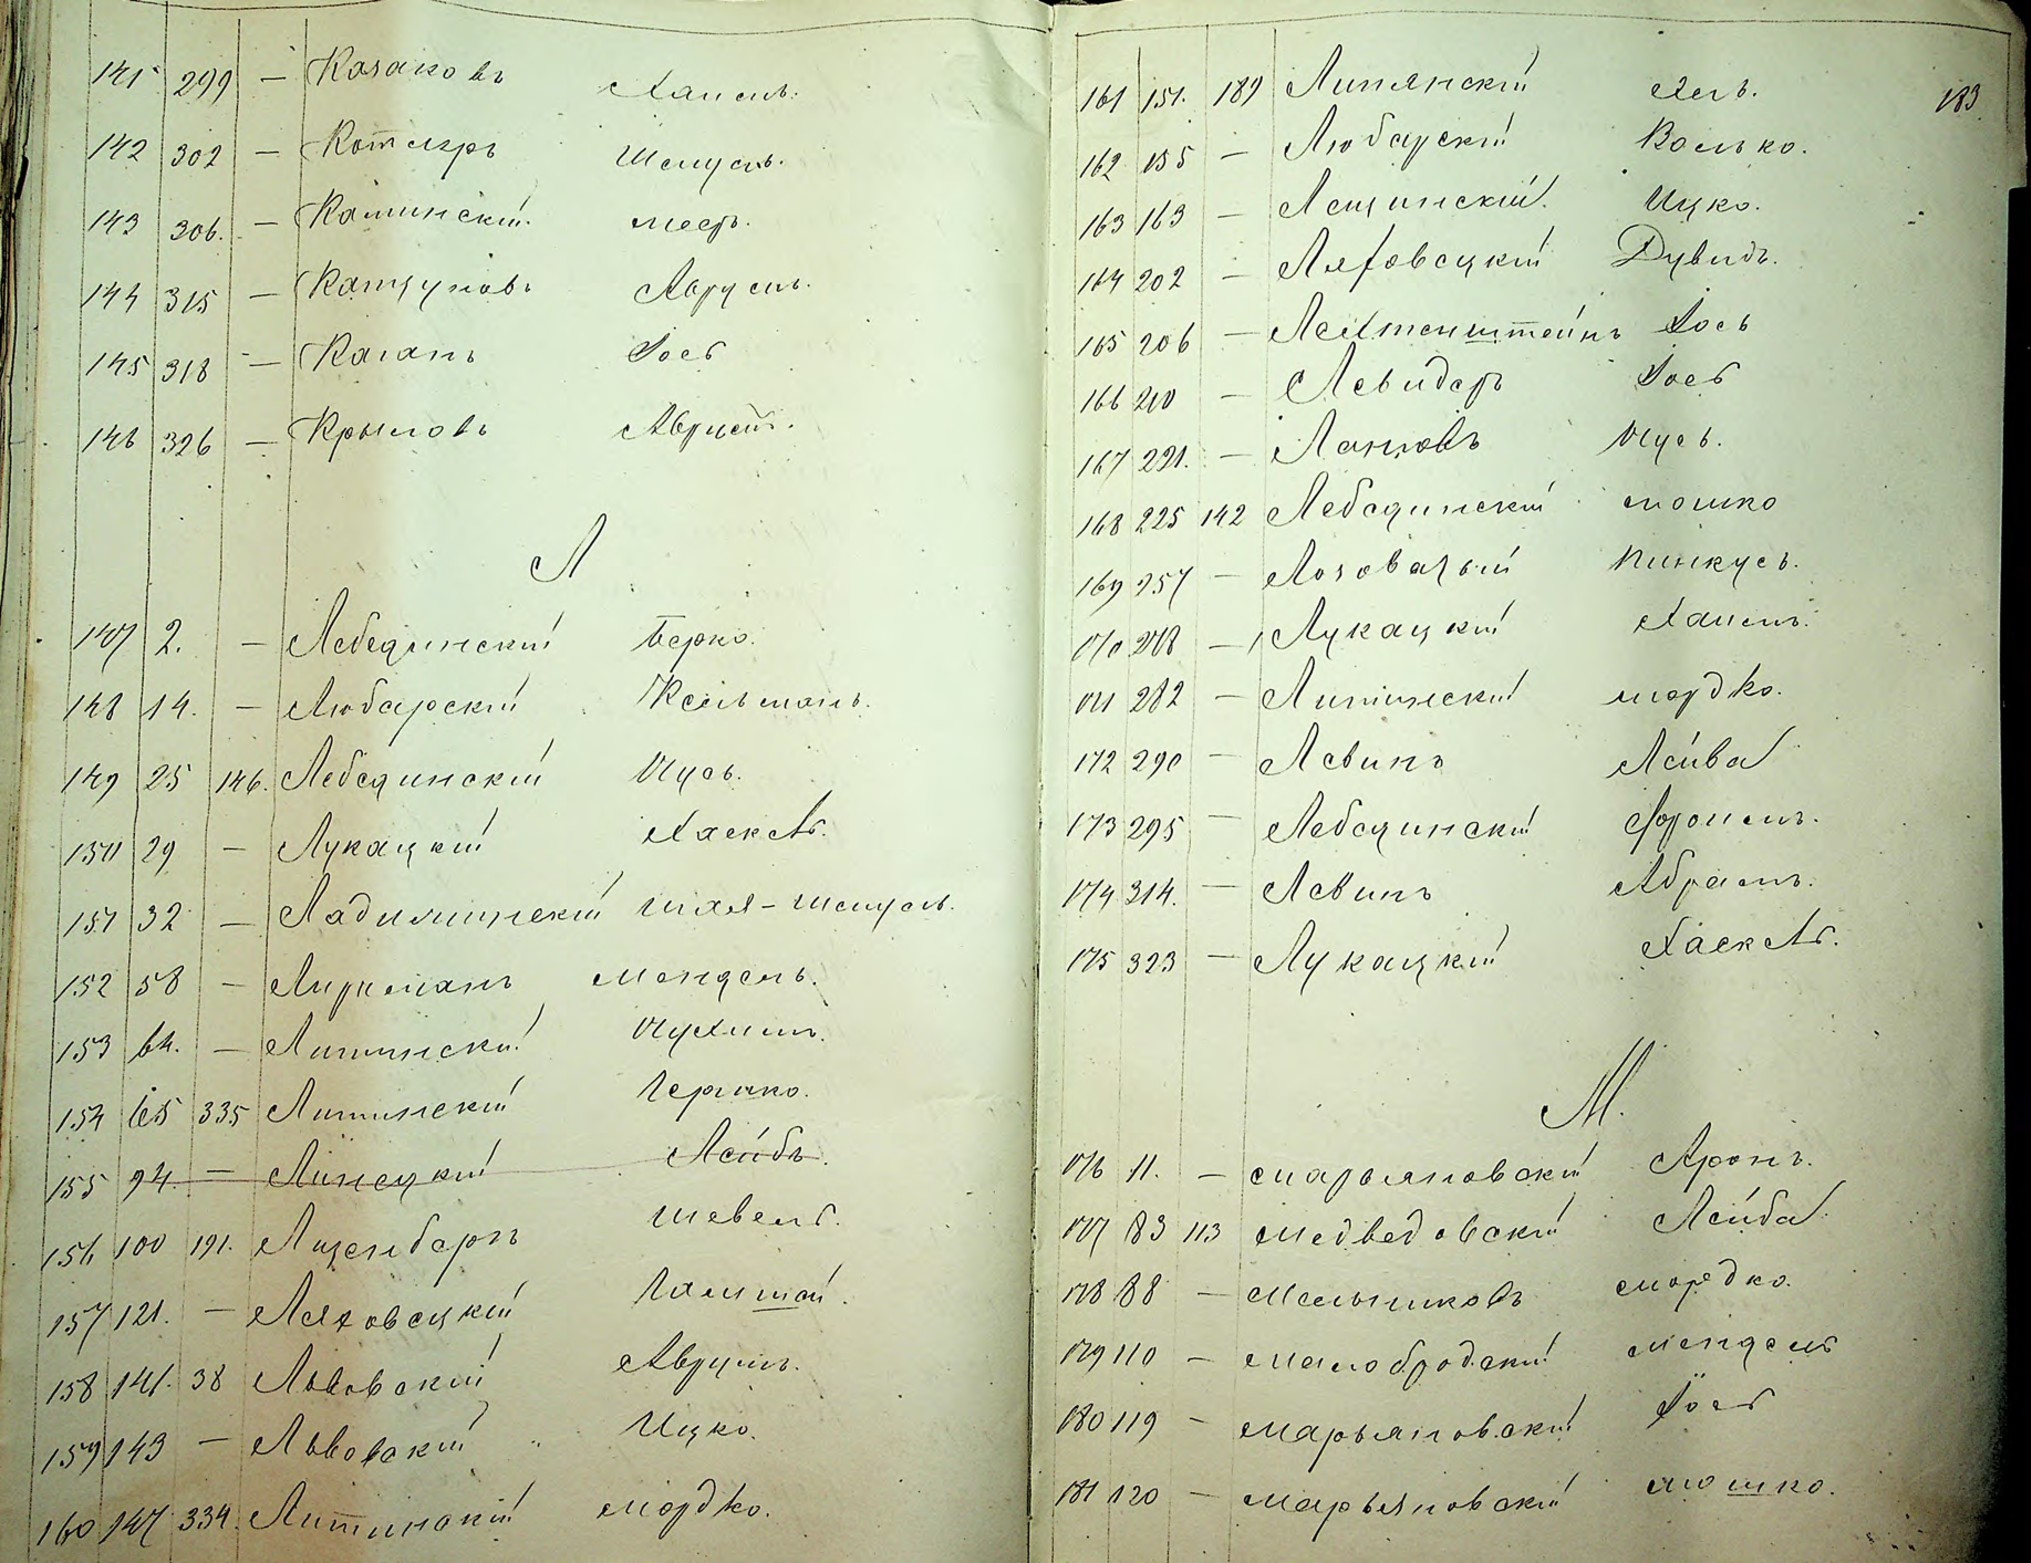 141 299 — Казаковъ Хаимъ.
142 302 — Котляръ Шмуль.
143 306. — Каминскій. Меер.
144 315 — Аврумъ.
145 318 — Каганъ Іось
146 326 — Крымовъ Аврумъ.
Л
147 2. — Лебединскій Берко.
148 14. — Любарскій Кельманъ.
149 25 146. Лебединскій Нусь.
150 29 — Лукацкій Хаскель.
151 32 — Ладижинскій Шая-Шмуль.
152 58 — Лирцманъ Мендель.
153 64. — Литинскій Нухимъ.
154 65 335 Литинскій Гершко.
155 94. — Линецкій Лейбъ.
156 100 191. Лизенбергъ Шевель.
157 121. — Ляховецкій
158 141. 38 Львовскій Аврумъ.
159 143 — Львовскій Ицко.
160 147 334. Литинскій Мордко.
183.
161 151. 189 Липянскій Хель.
162 155 — Любарскій Волько.
163 163 — Лещинскій. Ицко.
164 202 — Ляховецкій Дувидъ.
165 206 — Лейхтенштейнъ Іось
166 210 — Левидеръ Іось
167 221. — Нусь.
168 225 142 Лебединскій Мошко
169 257 — Лозоватый Пинкусь.
170 278 — Лукацкій Хаимъ.
171 282 — Литинскій Мордко.
172 290 — Левинъ Лейба
173 295 — Лебединскій Фроимъ.
174 314. — Левинъ Абрамъ.
175 323 — Лукацкій Хаскель.
М.
176 11. — Марьяновскій Аронъ.
177 83 113 Медведовскій Лейба
178 88 — Мельниковъ Мордко.
179 110 — Малобродскій Мендель
180 119 — Марьяновскій Іось
181 120 — Марьяновскій Мошко.